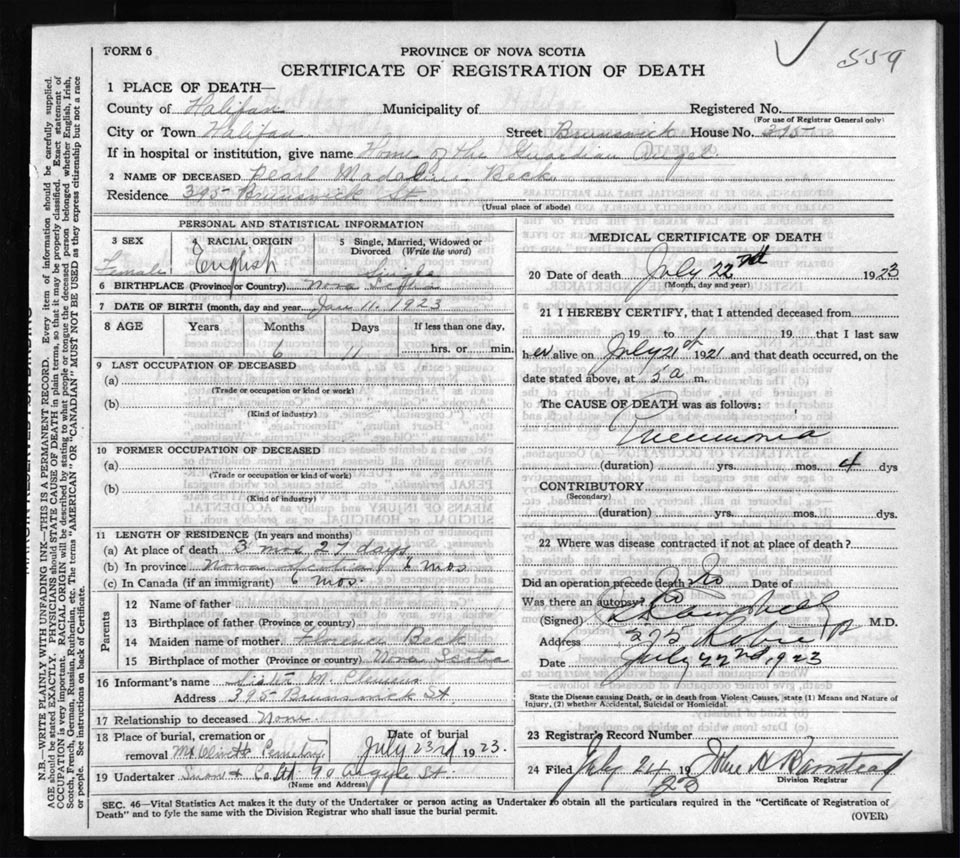 FORM 6
PROVINCE OF NOVA SCOTIA
559
CERTIFICATE OF REGISTRATION OF DEATH
1 PLACE OF DEATH—
County of Halifax Municipality of Registered No.
(For use of Registrar General only)
City or Town Halifax Street Brunswick House No. 395
If in hospital or institution, give name Home of the Guardian Angel
2 NAME OF DECEASED Pearl Madeline Beck
Residence 395 Brunswick St
(Usual place of abode)
PERSONAL AND STATISTICAL INFORMATION
3 SEX 4 RACIAL ORIGIN 5 Single, Married, Widowed or Divorced (Write the word)
Female English Single
6 BIRTHPLACE (Province or Country) Nova Scotia
7 DATE OF BIRTH (month, day and year) Jan 11. 1923
8 AGE Years Months Days If less than one day,
6 11 hrs. or min.
9 LAST OCCUPATION OF DECEASED
(a)
(Trade or occupation or kind or work)
(b)
(Kind of industry)
10 FORMER OCCUPATION OF DECEASED
(a)
(Trade or occupation or kind or work)
(b)
(Kind of industry)
11 LENGTH OF RESIDENCE (In years and months)
(a) At place of death 3 mos 27 days
(b) In province Nova Scotia 6 mos
(c) In Canada (if an immigrant) 6 mos.
Parents
12 Name of father
13 Birthplace of father (Province or country)
14 Maiden name of mother Florence Beck
15 Birthplace of mother (Province or country) Nova Scotia
16 Informant's name Sister M.
Address 395 Brunswick St
17 Relationship to deceased None
18 Place of burial, cremation or removal Mt Olivet Cemetery Date of burial July 23rd 1923.
19 Undertaker Snow & Co. 90 Argyle St.
(Name and Address)
MEDICAL CERTIFICATE OF DEATH
20 Date of death July 22nd 1923
(Month, day and year)
21 I HEREBY CERTIFY, that I attended deceased from
19 to 19 that I last saw
her alive on July 21st 1921 and that death occurred, on the
date stated above, at 5 a m.
The CAUSE OF DEATH was as follows:
Pneumonia
(duration) yrs. mos. 4 dys
CONTRIBUTORY
(Secondary)
(duration) yrs. mos. dys.
22 Where was disease contracted if not at place of death?
Did an operation precede death? No Date of
Was there an autopsy? No
(Signed) Campbell M.D.
Address 275 Robie St
Date July 22nd 1923
State the Disease causing Death, or in death from Violent Causes, state (1) Means and Nature of
Injury, (2) whether Accidental, Suicidal or Homicidal.
23 Registrar's Record Number
24 Filed July 24 1923
Division Registrar
SEC. 46—Vital Statistics Act makes it the duty of the Undertaker or person acting as Undertaker to obtain all the particulars required in the "Certificate of Registration of
Death" and to fyle the same with the Division Registrar who shall issue the burial permit.
(OVER)
N.B.—WRITE PLAINLY WITH UNFADING INK—THIS IS A PERMANENT RECORD. Every item of information should be carefully supplied.
AGE should be stated EXACTLY. PHYSICIANS should STATE CAUSE OF DEATH in plain terms, so that it may be properly classified. Exact statement of
OCCUPATION is very important. RACIAL ORIGIN will be described by stating to what people or tongue the deceased person belonged whether English, Irish,
Scotch, French, German, Russian, Ruthenian, etc. The terms "AMERICAN" or "CANADIAN" MUST NOT BE USED as they express citizenship but not a race
or people. See instructions on back of Certificate.